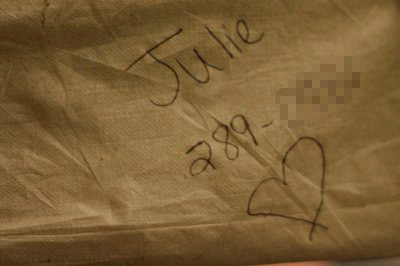 Julie
289-